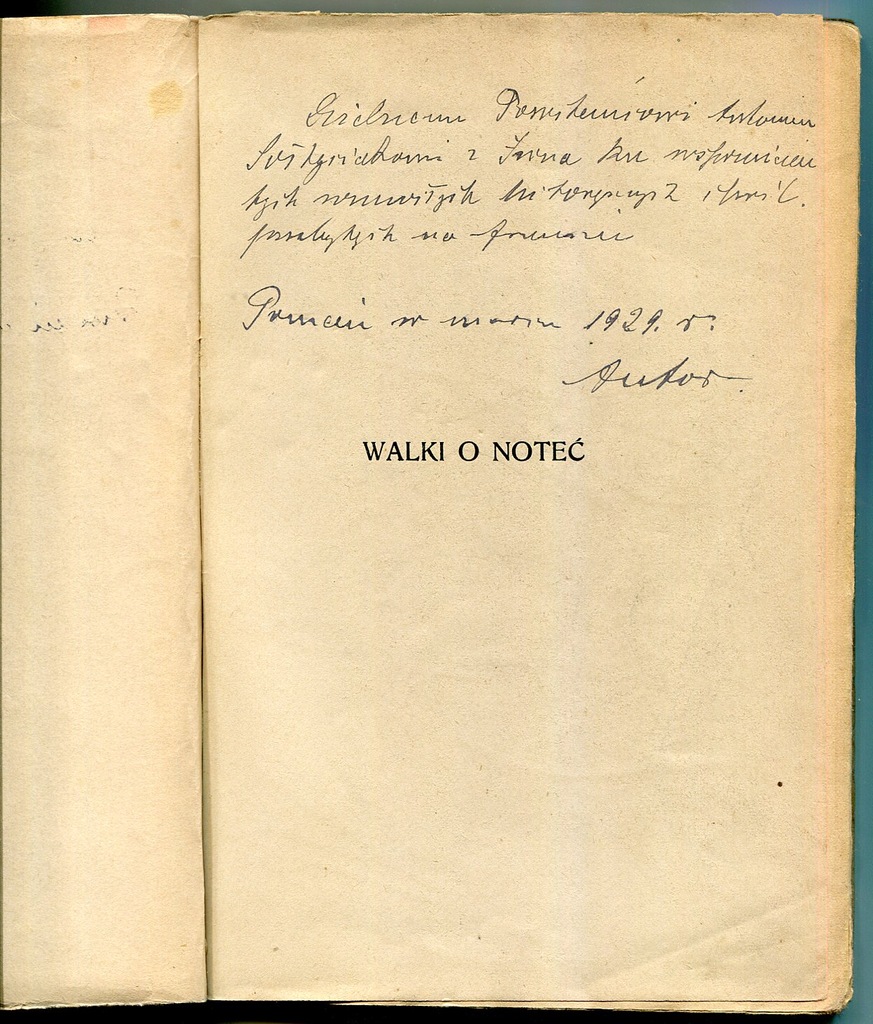 Dzielnemu Powstańcowi Antoniemu
z Jana ku wspomnieniu
tych wzniosłych historycznych chwil
przebytych na froncie
Poznań w marcu 1929. r.
Autor.
WALKI O NOTEĆ